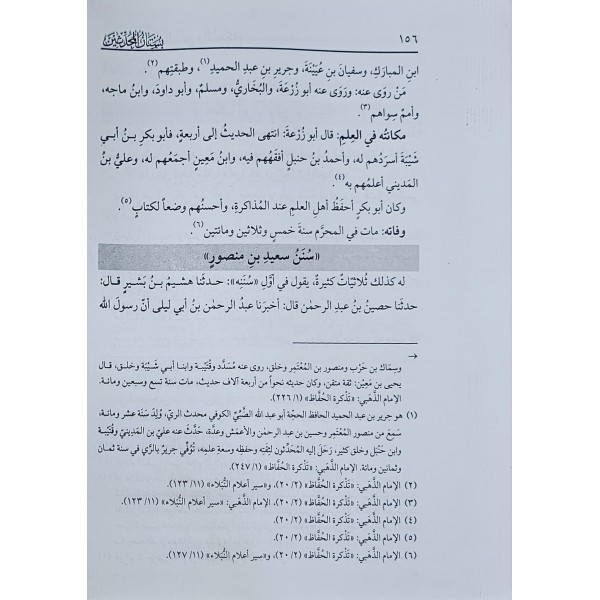 ١٥٦
بستان المحدثين
ابنِ المبارَكِ، وسفيانَ بنِ عُيَيْنَةَ، وجريرِ بنِ عبدِ الحميدِ(١)، وطبقتِهم(٢).
مَنْ روَى عنه: ورَوَى عنه أبو زُرْعَةَ، والبُخَاريُّ، ومسلمٌ، وأبو داودَ، وابنُ ماجه، وأممٌ سِواهم(٣).
مكانتُه في العِلمِ: قال أبو زُرعةَ: انتهى الحديثُ إلى أربعةٍ، فأبو بكرِ بنُ أبي
شَيْبَةَ أسرَدُهم له، وأحمدُ بنُ حنبلٍ أفقَهُهم فيه، وابنُ مَعِينٍ أجمَعُهم له، وعليُّ بنُ
المَديني أعلمُهم به(٤).
وكان أبو بكرٍ أحفَظُ أهلِ العلمِ عند المُذاكرةِ، وأحسنُهم وضعاً لكتابٍ(٥).
وفاته: مات في المحرَّم سنةَ خمسٍ وثلاثين ومائتين(٦).
«سُنَنُ سعيدِ بنِ منصورٍ»
له كذلك ثُلاثِيّاتٌ كثيرةٌ، يقول في أوَّلِ «سُنَنِه»: حدثَنا هشيمُ بنُ بَشيرٍ قال:
حدثَنا حصينُ بنُ عبدِ الرحمٰن قال: أخبرَنا عبدُ الرحمٰن بنُ أبي ليلى أنّ رسولَ الله
→
وسِماك بن حَرْب ومنصور بن المُعْتَمِر وخلق، روى عنه مُسَدَّد وقُتَيْبَة وابنا أبي شَيْبَة وخلق، قال
يحيى بن مَعِيْن: ثقة متقن، وكان حديثه نحواً من أربعة آلاف حديث، مات سنة تسع وسبعين ومائة.
الإمام الذَّهَبي: «تذكرة الحُفَّاظ» (١/ ٢٢٦).
(١) هو جرير بن عبد الحميد الحافظ الحجَّة أبو عبد الله الضَّبِّيّ الكوفي محدث الريّ، وُلِدَ سَنَة عشر ومائة،
سَمِعَ من منصور المُعْتَمِر وحسين بن عبد الرحمٰن والأعمَش وعدَّة، حَدَّث عنه عليّ بن المَدِينيّ وقُتَيْبَة
وابن حَنْبَل وخلق كثير، رَحَلَ إليه المُحَدِّثون لِثِقتِه وحفظِه وسعةِ علمِه، تُوُفِّي جريرٌ بالرَّي في سنة ثمان
وثمانين ومائة. الإمام الذَّهَبي: «تَذْكرة الحُفَّاظ» (١/ ٢٤٧).
(٢) الإمام الذَّهَبي: «تَذْكرة الحُفَّاظ» (٢/ ٢٠)، و«سير أعلام النُّبَلاء» (١١/ ١٢٣).
(٣) الإمام الذَّهَبي: «تَذْكرة الحُفَّاظ» (٢/ ٢٠)، الإمام الذَّهَبي: «سير أعلام النُّبَلاء» (١١/ ١٢٣).
(٤) الإمام الذَّهَبي: «تَذْكرة الحُفَّاظ» (٢/ ٢٠).
(٥) الإمام الذَّهَبي: «تَذْكرة الحُفَّاظ» (٢/ ٢٠).
(٦) الإمام الذَّهَبي: «تَذْكرة الحُفَّاظ» (٢/ ٢٠)، و«سير أعلام النُّبَلاء» (١١/ ١٢٧).